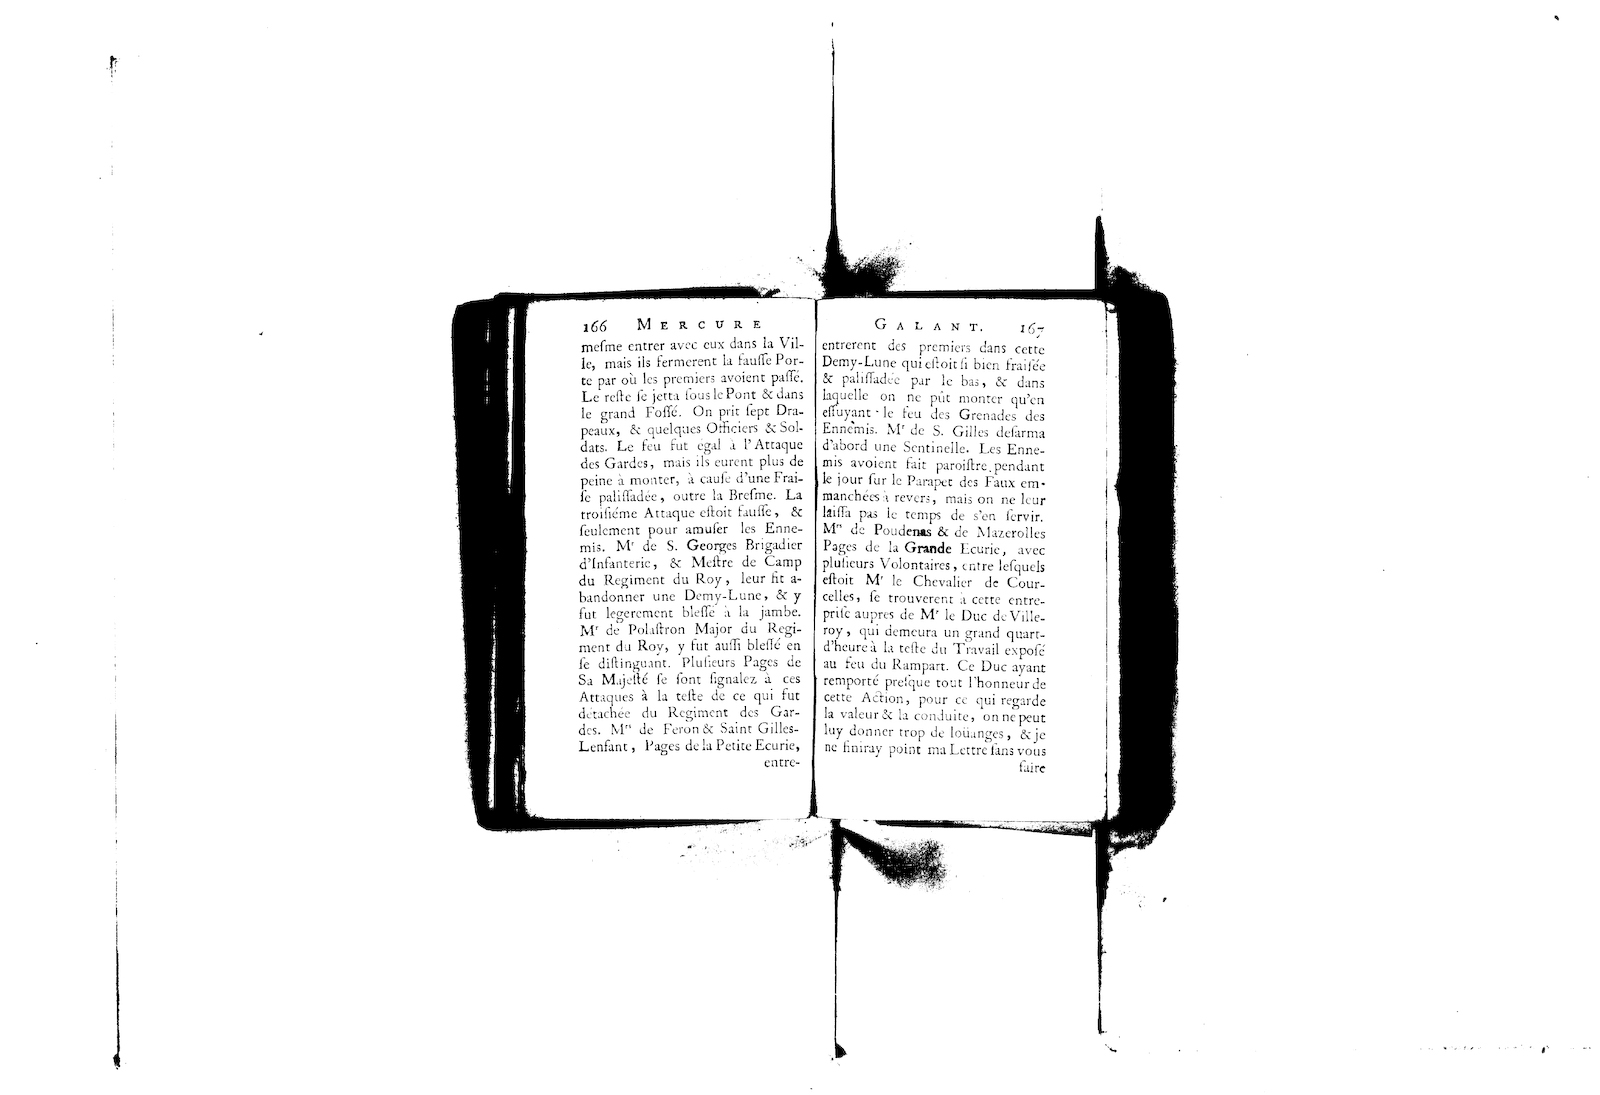 166 MERCURE
meſme entrer avec eux dans la Vil-
le, mais ils fermerent la fauſſe Por-
te par où les premiers avoient paſſé.
Le reſte ſe jetta ſous le Pont & dans
le grand Foſſé. On prit ſept Dra-
peaux, & quelques Officiers & Sol-
dats. Le feu fut égal à l'Attaque
des Gardes, mais ils eurent plus de
peine à monter, à cauſe d'une Frai-
ſe paliſſadée, outre la Breſme. La
troiſiéme Attaque eſtoit fauſſe, &
ſeulement pour amuſer les Enne-
mis. Mr de S. Georges Brigadier
d'Infanterie, & Meſtre de Camp
du Regiment du Roy, leur fit a-
bandonner une Demy-Lune, & y
fut legerement bleſſé à la jambe.
Mr de Polaſtron Major du Regi-
ment du Roy, y fut auſſi bleſſé en
ſe diſtinguant. Pluſieurs Pages de
Sa Majeſté ſe ſont ſignalez à ces
Attaques à la teſte de ce qui fut
détachée du Regiment des Gar-
des. Mrs de Feron & Saint Gilles-
Lenfant, Pages de la Petite Ecurie,
entre-
GALANT. 167
entrerent des premiers dans cette
Demy-Lune qui eſtoit ſi bien fraiſée
& paliſſadée par le bas, & dans
laquelle on ne pût monter qu'en
eſſuyant le feu des Grenades des
Ennemis. Mr de S. Gilles deſarma
d'abord une Sentinelle. Les Enne-
mis avoient fait paroiſtre pendant
le jour ſur le Parapet des Faux em-
manchées à revers, mais on ne leur
laiſſa pas le temps de s'en ſervir.
Mrs de Poudenas & de Mazerolles
Pages de la Grande Ecurie, avec
pluſieurs Volontaires, entre leſquels
eſtoit Mr le Chevalier de Cour-
celles, ſe trouverent à cette entre-
priſe aupres de Mr le Duc de Ville-
roy, qui demeura un grand quart-
d'heure à la teſte du Travail expoſé
au feu du Rampart. Ce Duc ayant
remporté preſque tout l'honneur de
cette Action, pour ce qui regarde
la valeur & la conduite, on ne peut
luy donner trop de loüanges, & je
ne finiray point ma Lettre ſans vous
faire